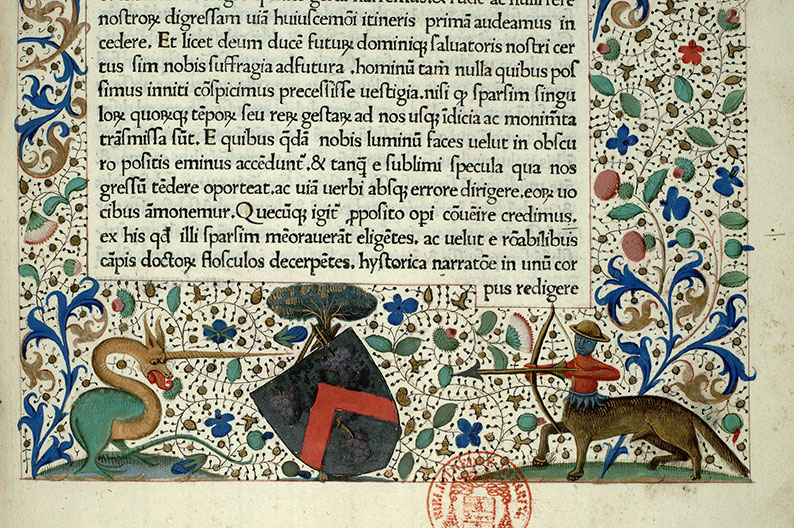 nostroꝝ digressam uiā huiuscemōi itineris primā audeamus in
cedere. Et licet deum ducē futurꝝ dominiqꝫ saluatoris nostri cer
tus sim nobis suffragia adfutura .hominū tam nulla quibus pos
simus inniti cōspicimus precessisse uestigia.nisi ꝙ sparsim singu
loꝝ quorꝙ tēpoꝝ seu reꝝ gestaꝝ ad nos usqꝫ īdicia ac monimēta
trāsmissa sūt. E quibus qdā nobis luminū faces uelut in obscu
ro positis eminus accēdunt̃.& tanqꝫ e sublimi specula qua nos
gressū tēdere oporteat.ac uiā uerbi absqꝫ errore dirigere.eoꝝ uo
cibus āmonemur.Quecūqꝫ igit̃ ꝓposito opi cōueīre credimus.
ex his qd illi sparsim mēorauerāt eligētes. ac uelut e rōabilibus
cāpis doctoꝝ flosculos decerpētes. hystorica narratōe in unū cor
pus redigere